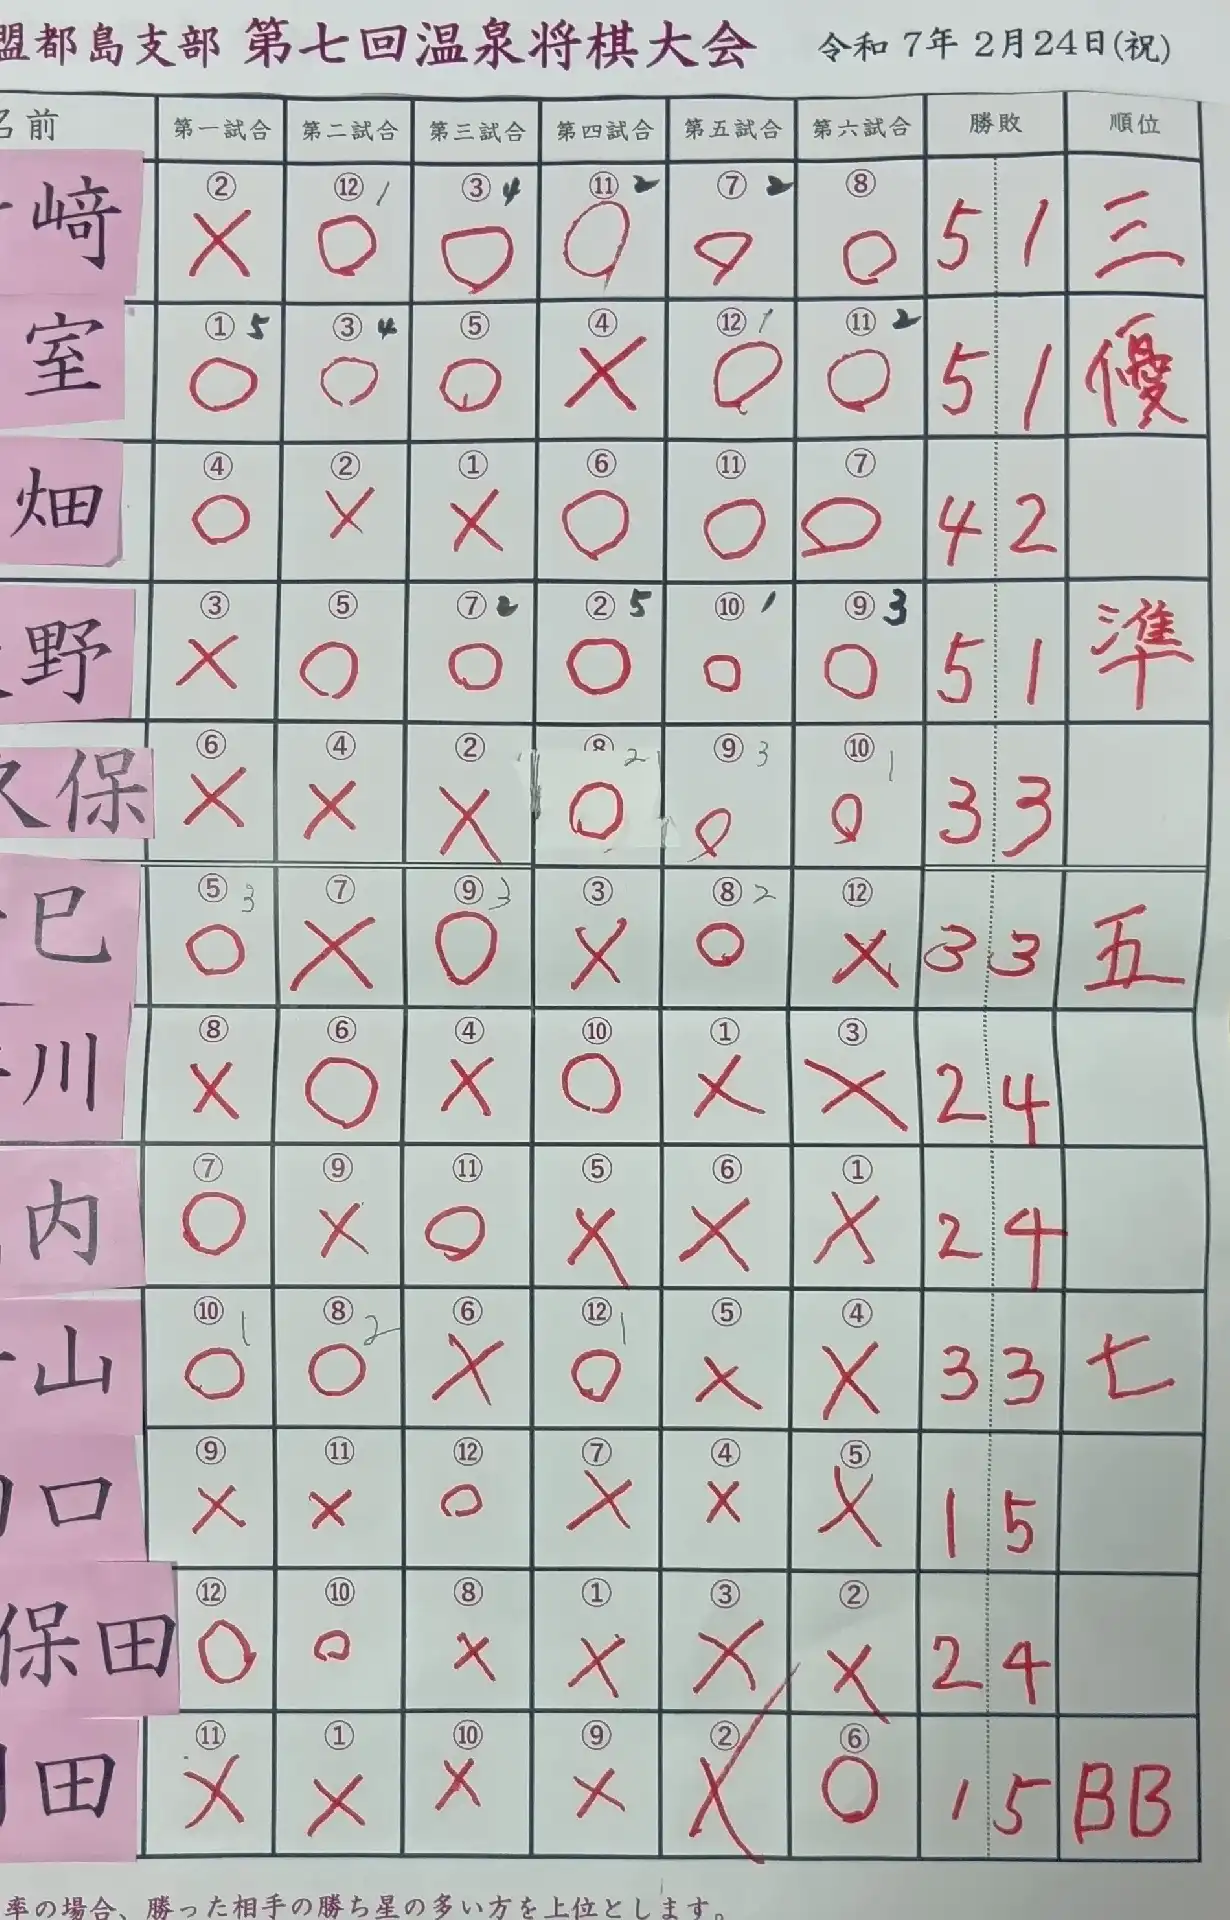 盟都島支部 第七回温泉将棋大会 令和7年2月24日(祝)
名前 第一試合 第二試合 第三試合 第四試合 第五試合 第六試合 勝敗 順位
② ⑫ 1 ③ 4 ⑪ 2 ⑦ 2 ⑧
﨑 × ○ ○ ○ ○ ○ 5 1 三
① 5 ③ 4 ⑤ ④ ⑫ 1 ⑪ 2
室 ○ ○ ○ × ○ ○ 5 1 優
④ ② ① ⑥ ⑪ ⑦
畑 ○ × × ○ ○ ○ 4 2
③ ⑤ ⑦ 2 ② 5 ⑩ 1 ⑨ 3
野 × ○ ○ ○ ○ ○ 5 1 準
⑥ ④ ② ⑧ 2 ⑨ 3 ⑩ 1
久保 × × × ○ ○ ○ 3 3
⑤ 3 ⑦ ⑨ 3 ③ ⑧ 2 ⑫
巳 ○ × ○ × ○ × 3 3 五
⑧ ⑥ ④ ⑩ ① ③
川 × ○ × ○ × × 2 4
⑦ ⑨ ⑪ ⑤ ⑥ ①
内 ○ × ○ × × × 2 4
⑩ 1 ⑧ 2 ⑥ ⑫ 1 ⑤ ④
山 ○ ○ × ○ × × 3 3 七
⑨ ⑪ ⑫ ⑦ ④ ⑤
口 × × ○ × × × 1 5
⑫ ⑩ ⑧ ① ③ ②
保田 ○ ○ × × × × 2 4
⑪ ① ⑩ ⑨ ② ⑥
田 × × × × × ○ 1 5 BB
率の場合、勝った相手の勝ち星の多い方を上位とします。